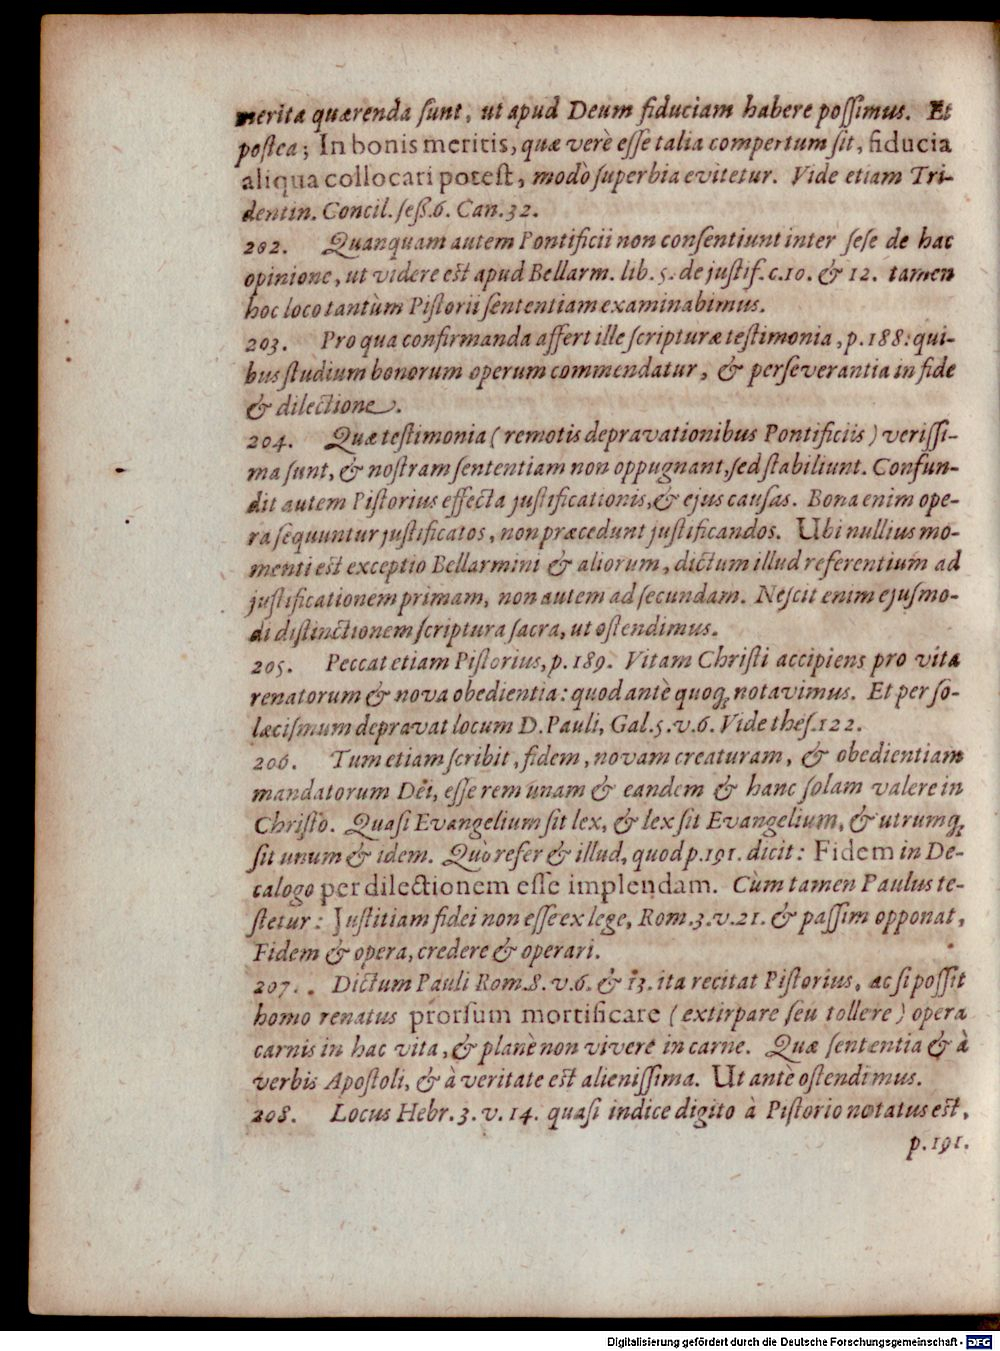 merita quærenda ſunt, ut apud Deum fiduciam habere poſſimus. Et
poſtea; In bonis meritis, quæ verè eſſe talia compertum ſit, fiducia
aliqua collocari poteſt, modò ſuperbia evitetur. Vide etiam Tri-
dentin. Concil. ſeß. 6. Can. 32.
202. Quanquam autem Pontificii non conſentiunt inter ſeſe de hac
opinione, ut videre eſt apud Bellarm. lib. 5. de juſtif. c. 10. & 12. tamen
hoc loco tantùm Piſtorii ſententiam examinabimus.
203. Pro qua confirmanda affert ille ſcripturæ teſtimonia, p. 188: qui-
bus ſtudium bonorum operum commendatur, & perſeverantia in fide
& dilectione.
204. Quæ teſtimonia (remotis depravationibus Pontificiis) veriſſi-
ma ſunt, & noſtram ſententiam non oppugnant, ſed ſtabiliunt. Confun-
dit autem Piſtorius effecta juſtificationis, & ejus cauſas. Bona enim ope-
ra ſequuntur juſtificatos, non præcedunt juſtificandos. Ubi nullius mo-
menti eſt exceptio Bellarmini & aliorum, dictum illud referentium ad
juſtificationem primam, non autem ad ſecundam. Neſcit enim ejuſmo-
di diſtinctionem ſcriptura ſacra, ut oſtendimus.
205. Peccat etiam Piſtorius, p. 189. Vitam Chriſti accipiens pro vita
renatorum & nova obedientia: quod antè quoq; notavimus. Et per ſo-
lœciſmum depravat locum D. Pauli, Gal. 5. v. 6. Vide theſ. 122.
206. Tum etiam ſcribit, fidem, novam creaturam, & obedientiam
mandatorum Dei, eſſe rem unam & eandem & hanc ſolam valere in
Chriſto. Quaſi Evangelium ſit lex, & lex ſit Evangelium, & utrumq;
ſit unum & idem. Quò refer & illud, quod p. 191. dicit: Fidem in De-
calogo per dilectionem eſſe implendam. Cùm tamen Paulus te-
ſtetur: Juſtitiam fidei non eſſe ex lege, Rom. 3. v. 21. & paſſim opponat,
Fidem & opera, credere & operari.
207. Dictum Pauli Rom. 8. v. 6. & 13. ita recitat Piſtorius, ac ſi poſſit
homo renatus prorſum mortificare (extirpare ſeu tollere) opera
carnis in hac vita, & planè non vivere in carne. Quæ ſententia & à
verbis Apoſtoli, & à veritate eſt alieniſſima. Ut antè oſtendimus.
208. Locus Hebr. 3. v. 14. quaſi indice digito à Piſtorio notatus eſt,
p. 191.
Digitalisierung gefördert durch die Deutsche Forschungsgemeinschaft - DFG